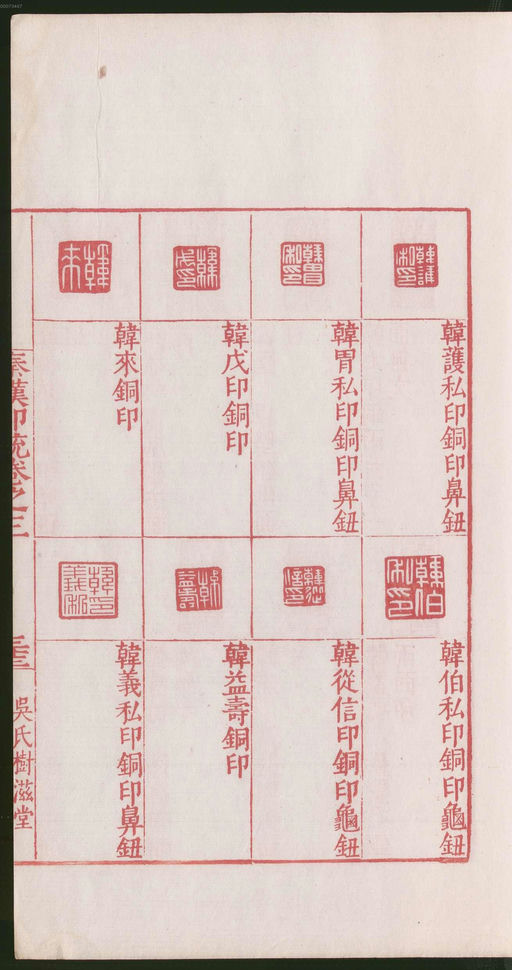 00073447
韓護私印銅印鼻鈕
韓胃私印銅印鼻鈕
韓戊印銅印
韓來銅印
韓伯私印銅印龜鈕
韓從信印銅印龜鈕
韓益壽銅印
韓義私印銅印鼻鈕
秦漢印統卷之三
吳氏樹滋堂